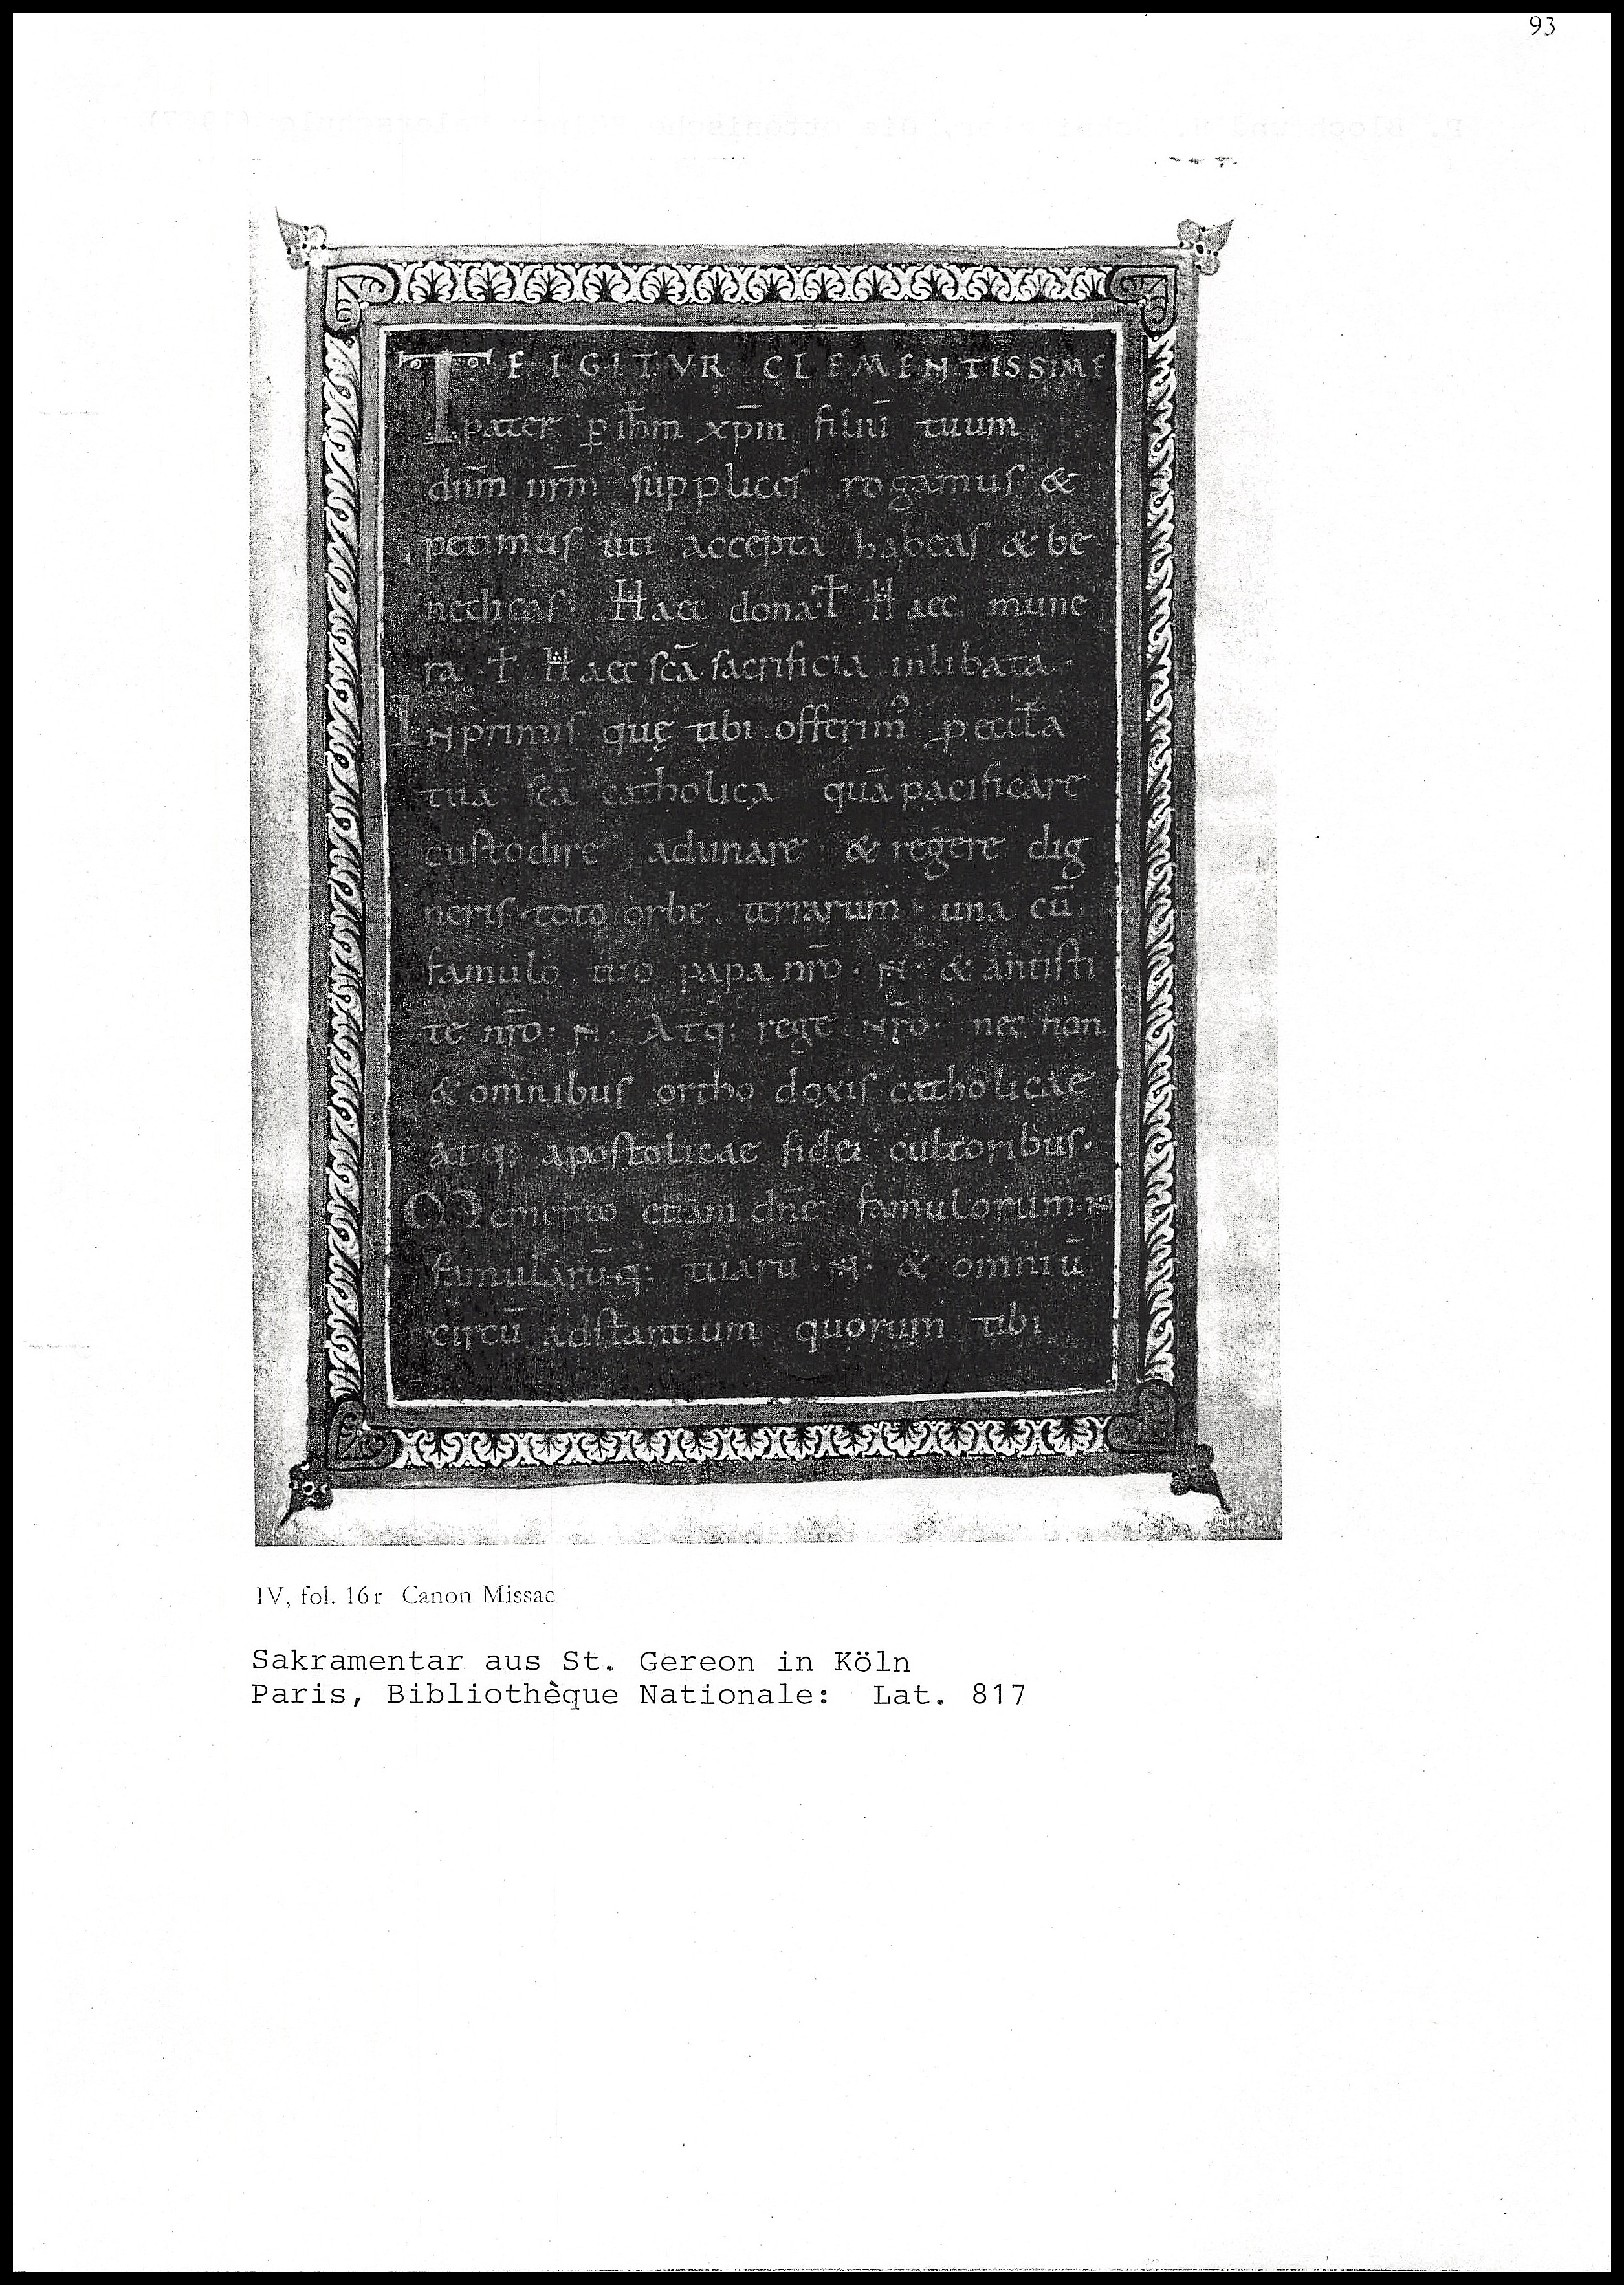 93
TE IGITVR CLEMENTISSIME
pater ꝑ ih̅m xp̅m filiū tuum
dn̅m nr̅m supplices rogamus &
petimus uti accepta habeas & be
nedicas: Haec dona ☩ Haec mune
ra · ☩ Haec sc̅a sacrificia inlibata ·
INprimis quę tibi offerim᾿ ꝓ eccl̅a
tua sc̅a catholica quā pacificare
custodire adunare & regere dig
neris · toto orbe terrarum una cū
famulo tuo papa nr̅o · N · & antisti
te nr̅o · N · Atq; rege Nr̅o · nec non
& omnibus orthodoxis catholicae
atq; apostolicae fidei cultoribus ·
Memento etiam dn̅e famulorum · N
famularūq; tuarū · N · & omniū
circū adstantium quorum tibi
IV, fol. 16r Canon Missae
Sakramentar aus St. Gereon in Köln
Paris, Bibliothèque Nationale: Lat. 817